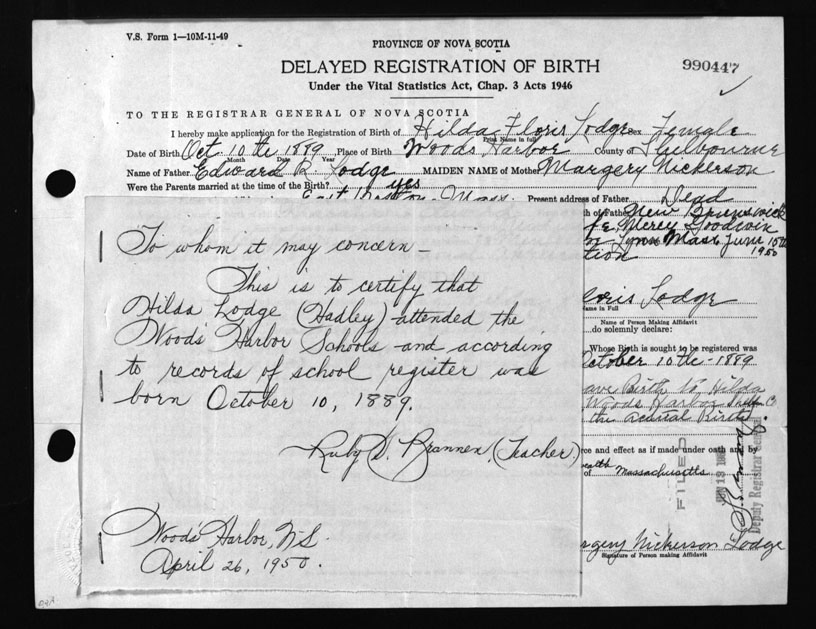 V.S. Form 1—10M-11-49
PROVINCE OF NOVA SCOTIA
DELAYED REGISTRATION OF BIRTH
990447
Under the Vital Statistics Act, Chap. 3 Acts 1946
TO THE REGISTRAR GENERAL OF NOVA SCOTIA
I hereby make application for the Registration of Birth of Hilda Floris Lodge Sex Female
Print Name in full
Date of Birth Oct. 10th 1889 Place of Birth Woods Harbor County of Shelbourne
Month Date Year
Name of Father Edward R. Lodge MAIDEN NAME of Mother Margery Nickerson
Were the Parents married at the time of the Birth? yes
East Boston, Mass. Present address of Father Dead
h of Father New Brunswick
Mercy Goodwin
Lynn Mass. June 15th
1950
tion
loris Lodge
ame in Full
Name of Person Making Affidavit
do solemnly declare:
Whose Birth is sought to be registered was
October 10th - 1889
ave Birth to Hilda
Woods Harbor Shelb. Co
the actual Birth
rce and effect as if made under oath and by
ealth
of Massachusetts
FILED
Deputy Registrar General
rgery Nickerson Lodge
Signature of Person making Affidavit
To whom it may concern —
This is to certify that
Hilda Lodge (Hadley) attended the
Woods Harbor Schools and according
to records of school register was
born October 10, 1889.
Ruby D. Brannen (Teacher)
Woods Harbor, N.S.
April 26, 1950.